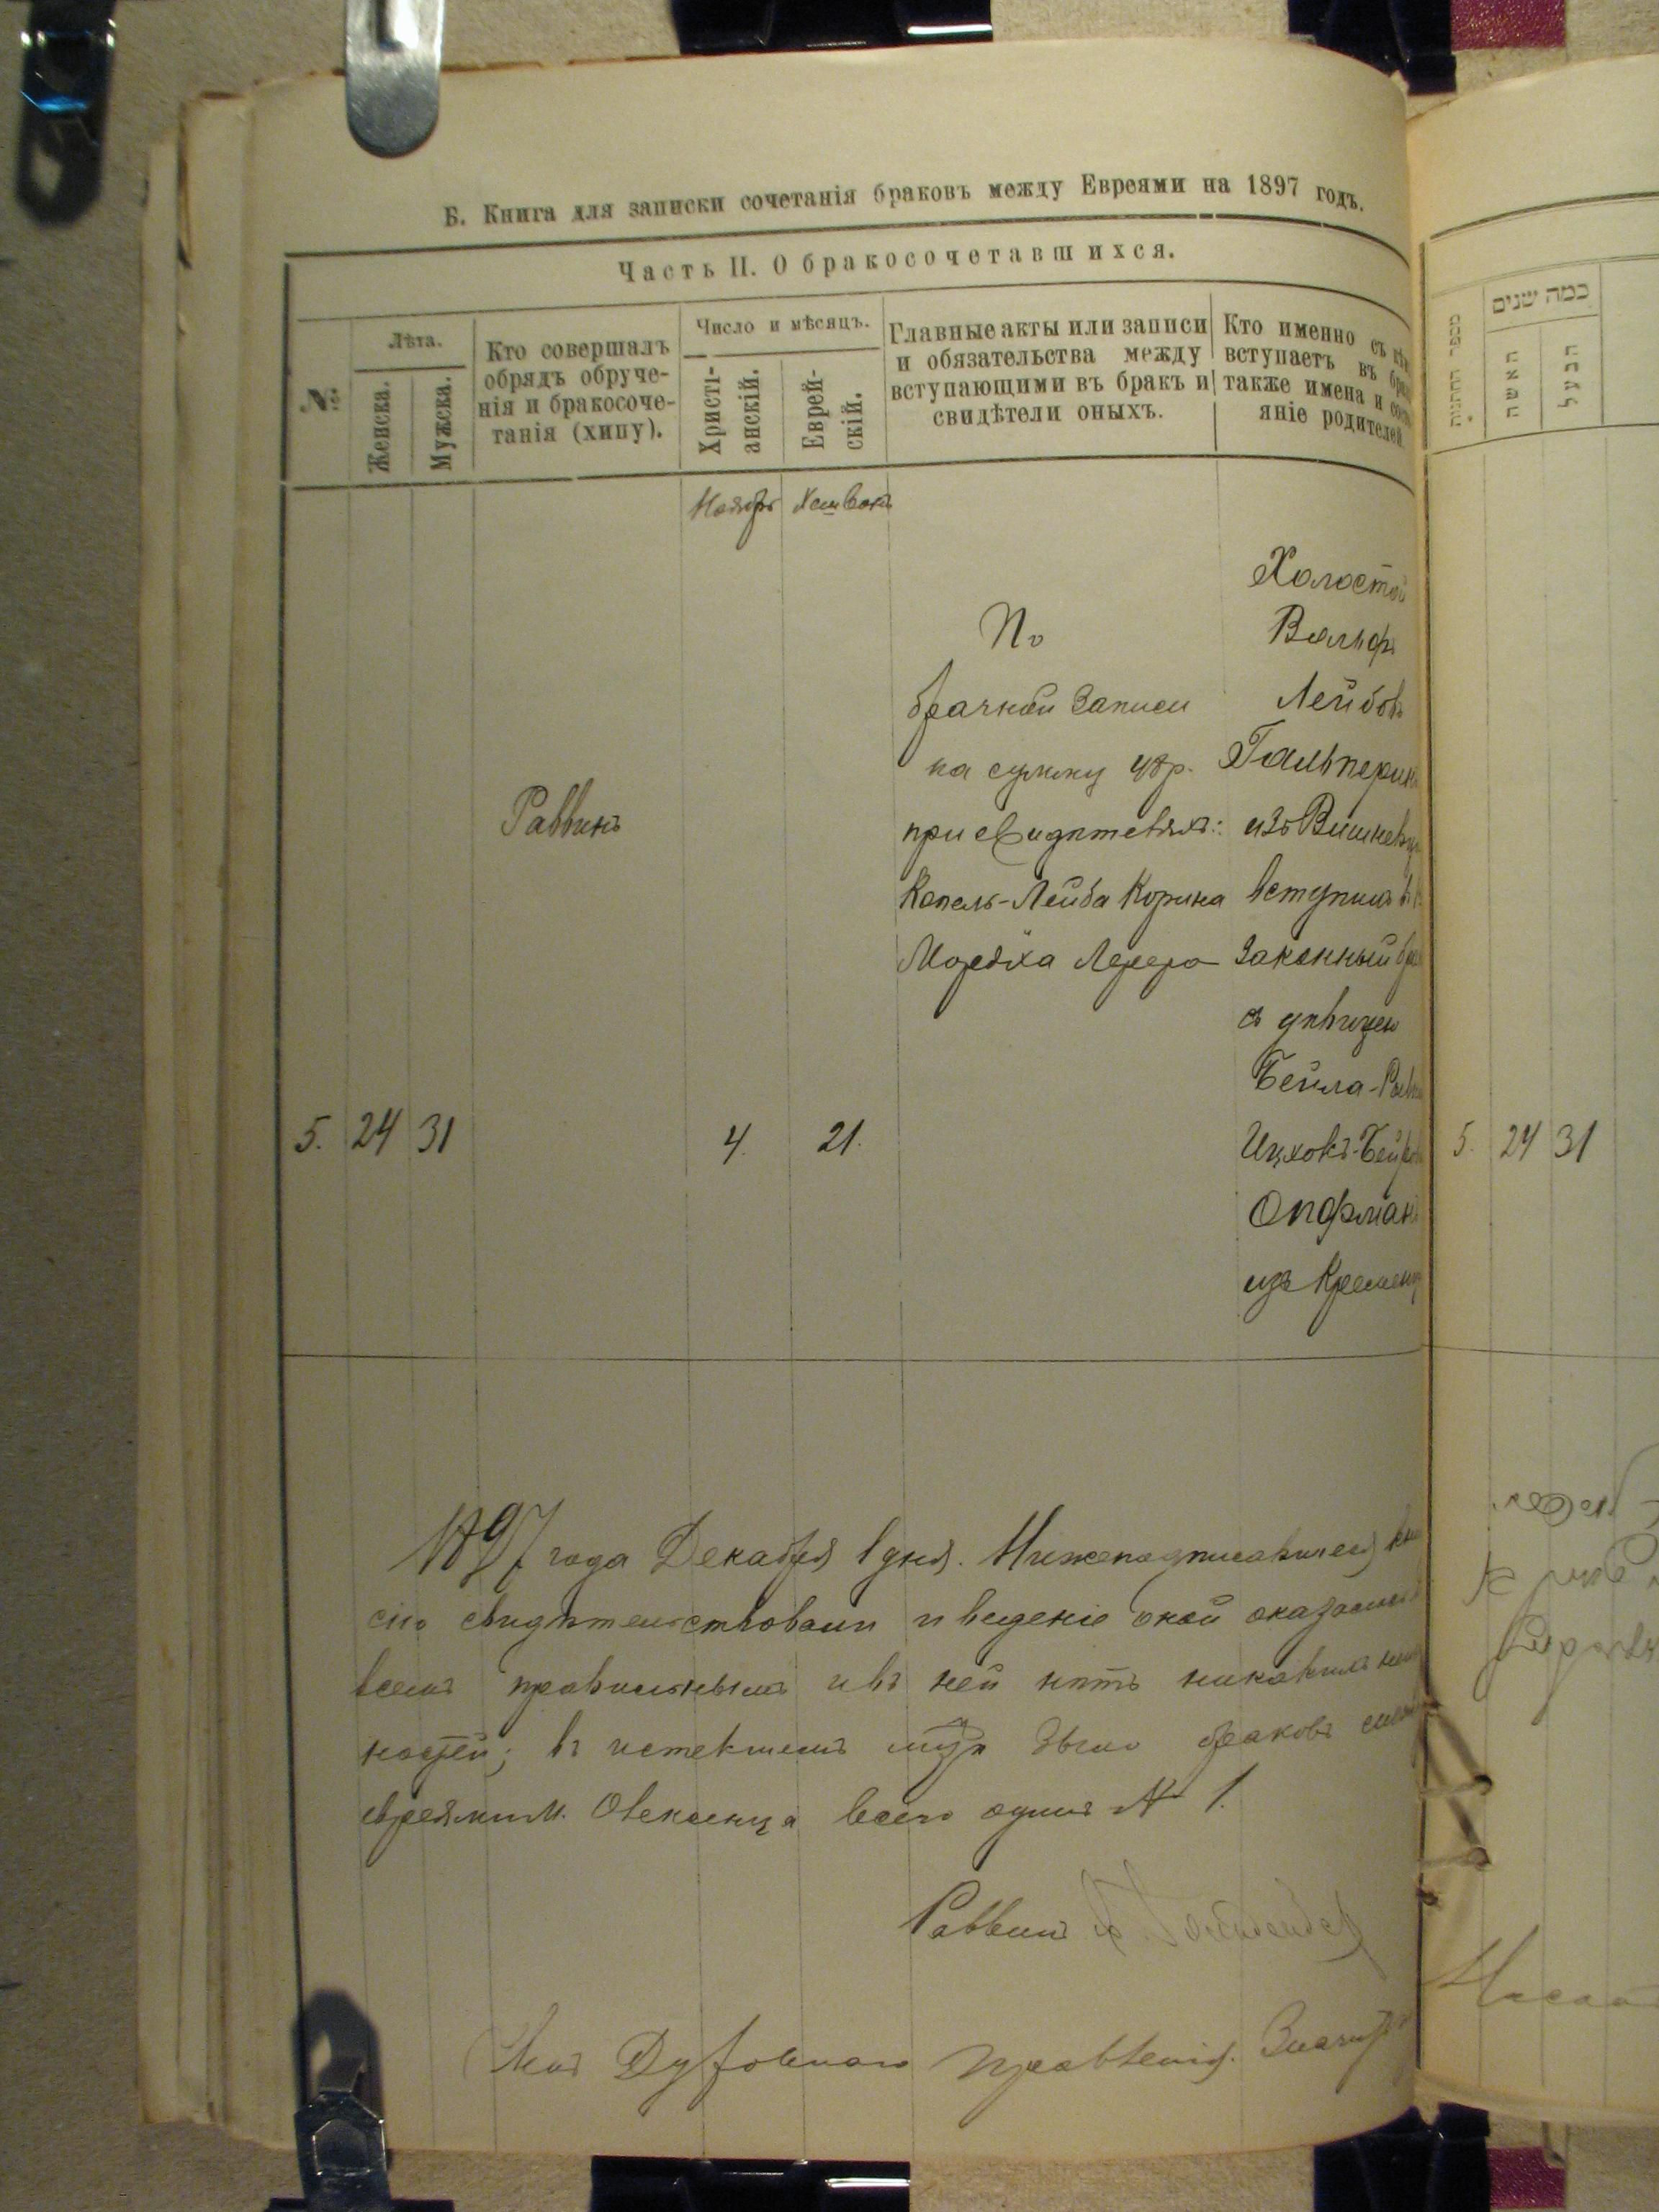 Б. Книга для записки сочетанія браковъ между Евреями на 1897 годъ.
Часть II. О бракосочетавшихся.
№
Лѣта.
Женска.
Мужска.
Кто совершалъ
обрядъ обруче-
нія и бракосоче-
танія (хипу).
Число и мѣсяцъ.
Христі-
анскій.
Еврей-
скій.
Главные акты или записи
и обязательства между
вступающими въ бракъ и
свидѣтели оныхъ.
Кто именно съ
вступаетъ въ
также имена и
яніе родителей
Ноябрь
Хешванъ
5.
24
31
Раввинъ
4.
21.
По
брачной записи
на сумму 48 р.
при свидѣтеляхъ:
Копель-Лейба Корина
Мордха Лерера
Холостой
Вольфъ
Лейбовъ
Гальперинъ
изъ Вишневца
вступилъ въ
законный
съ дѣвицею
Бейла-
Ицхокъ-
Опфман
изъ Кременц
1897 года Декабря 1 дня. Нижеподписавшіеся
сію свидѣтельствовали и веденіе оной
всемъ правильнымъ и въ ней нѣтъ никакихъ
ностей; въ истекшемъ м-цѣ было браковъ
евреями м. Олексинца всего одинъ № 1.
Раввинъ
Членъ Духовнаго Правленія.
מספר החתונות
כמה שנים
האשה
הבעל
5.
24
31